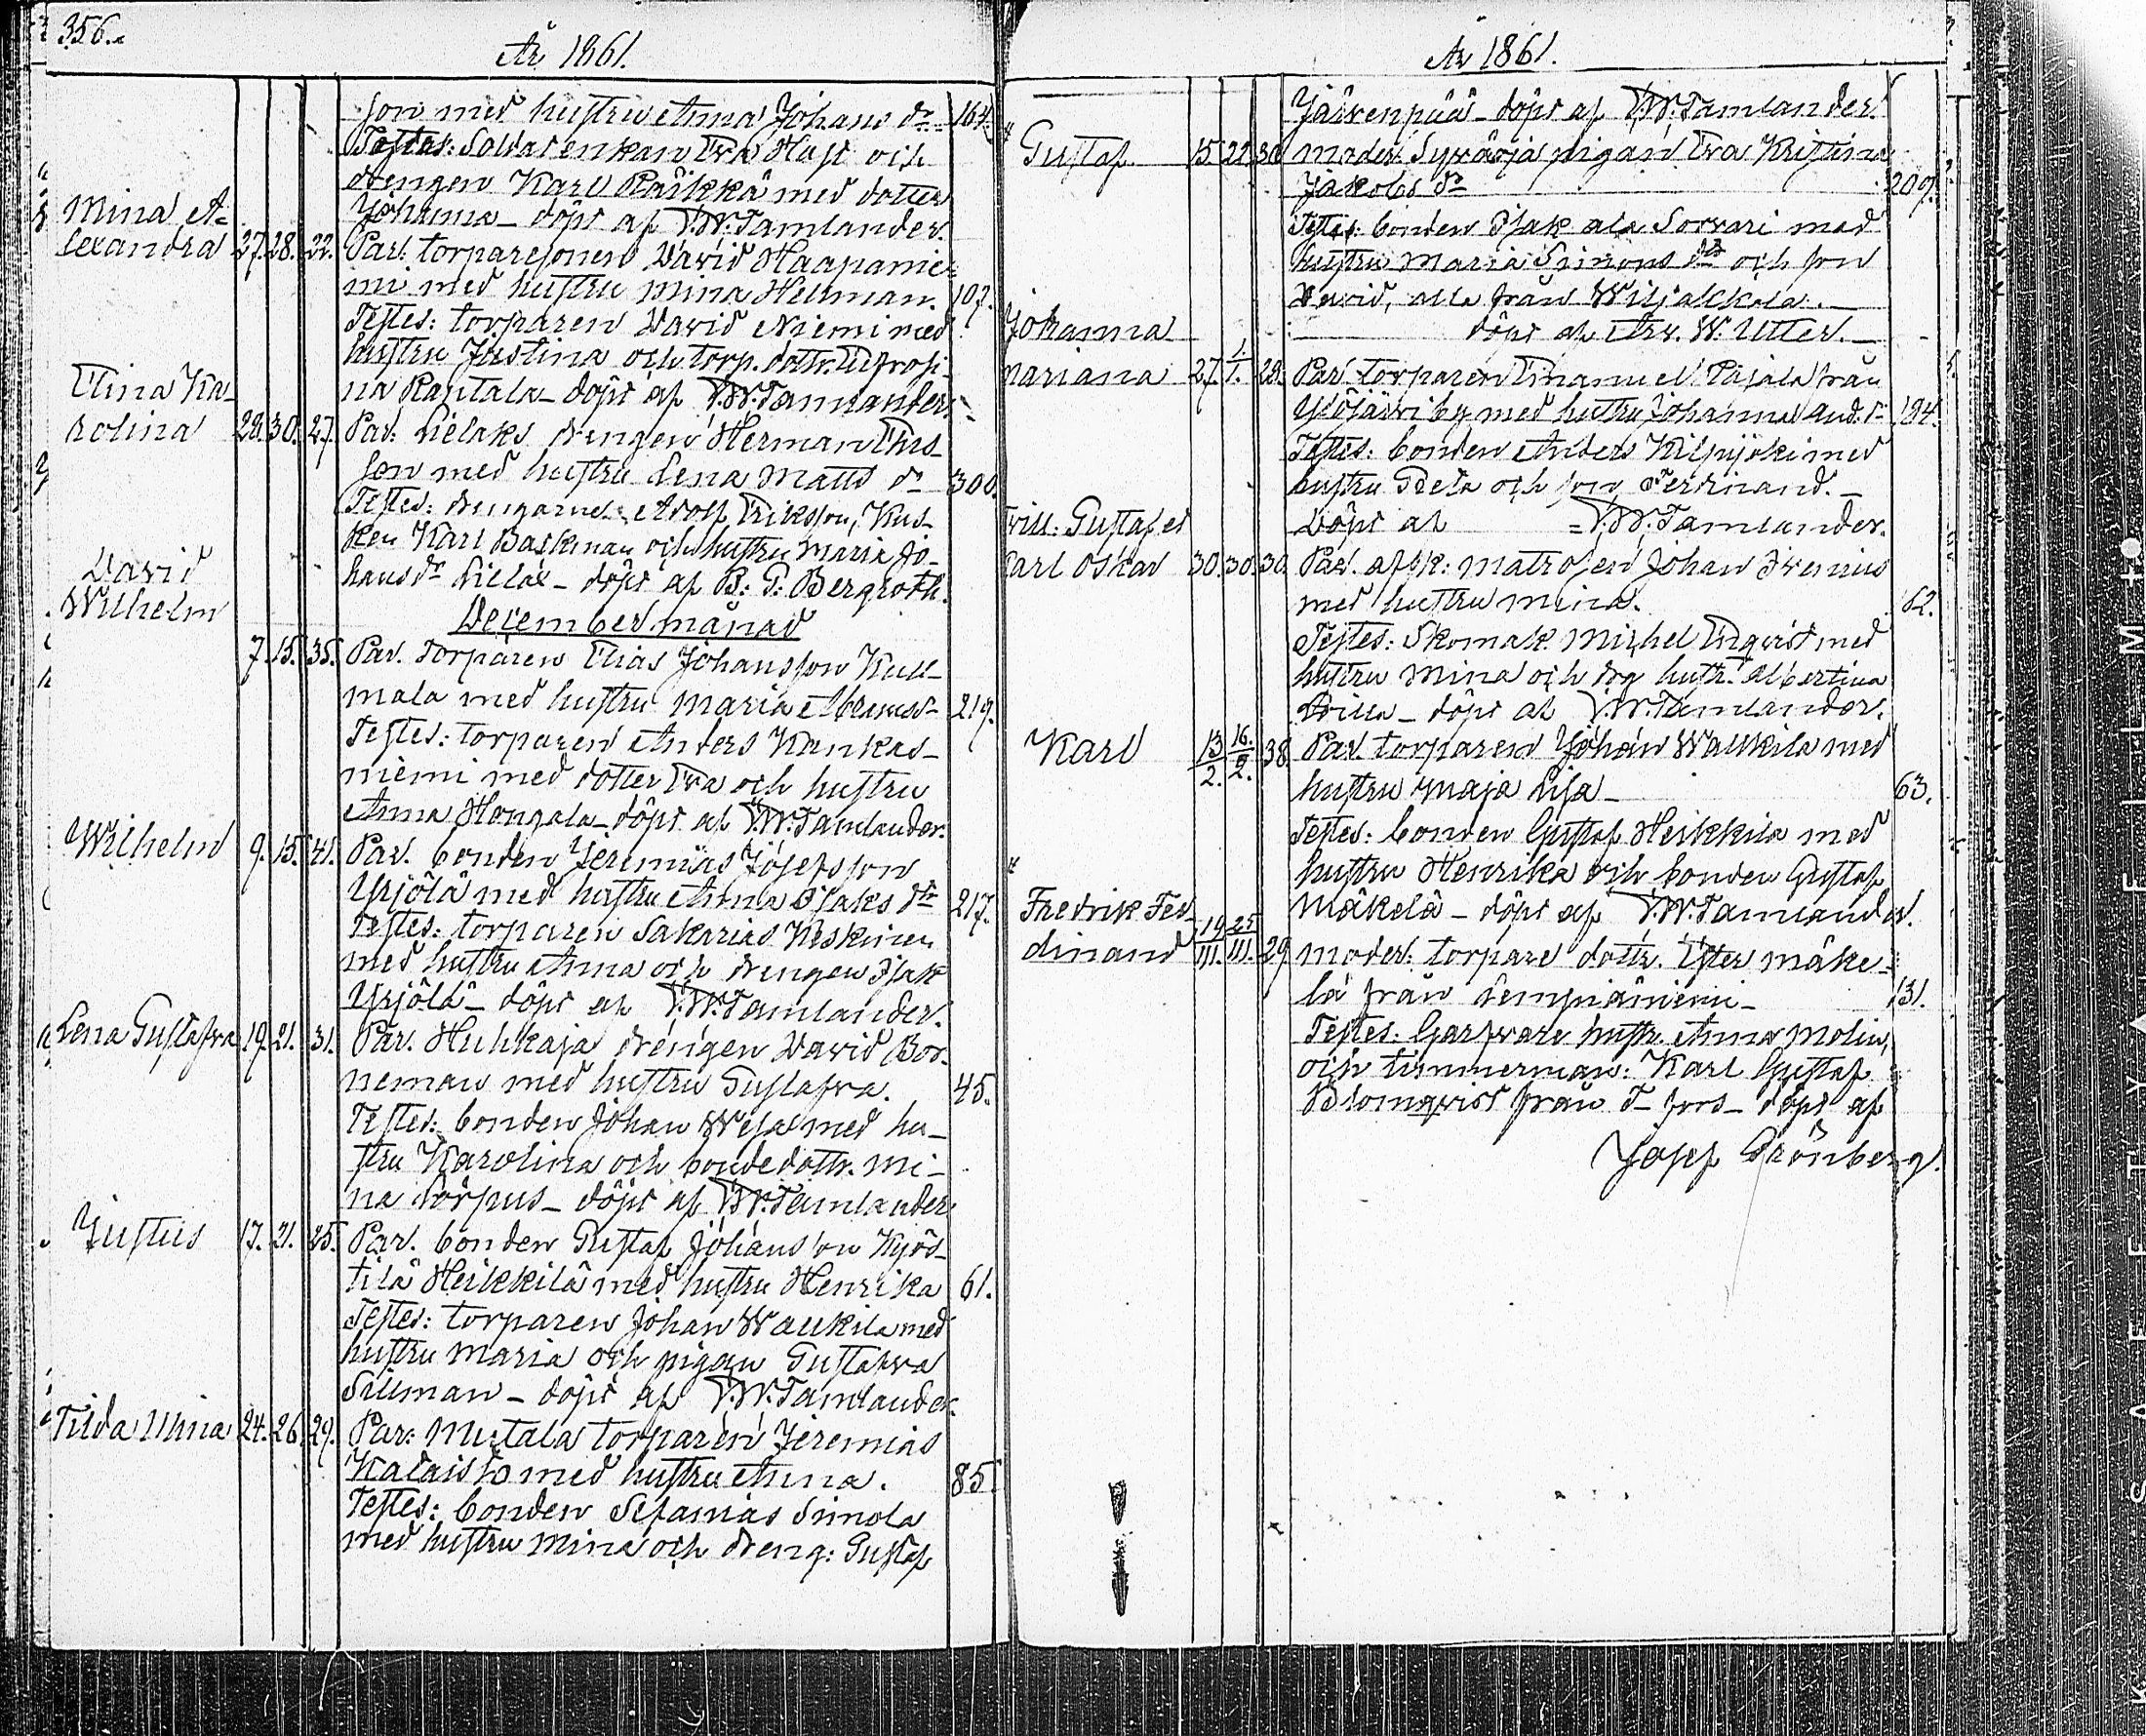 356.
År 1861.
son med hustru Anna Johans dr 164.
Testes: Soldatenkan Eva Hast och
drengen Karl Räikkä med dotter
Johanna - döpt af V.W. Tamlander.
Mina A-
lexandra 27. 28. 22. Par: torparesonen David Haapanie-
mi med hustru Mina Hellman. 107.
Testes: torparen David Niemi med
hustru Justina och torp. dottr. Eufrosi-
na Rantala - döpt af V.W. Tamlander.
Elina Ka-
rolina 29. 30. 27. Par: Lielaks drengen Herman Thus-
son med hustru Lena Matts dr 300.
Testes: drengarne Adolf Eriksson, Kus-
ken Karl Backman och hustru Maria Jo-
hans dr Lielax - döpt af B: G: Bergroth.
December månad
David
Wilhelm
7. 15. 35. Par. torparen Elias Johansson Kull-
mala med hustru Maria Abramsd- 219.
Testes: torparen Anders Kankas-
niemi med dotter Eva och hustru
Anna Hongala - döpt af V.W. Tamlander.
Wilhelm 9. 15. 41. Par. bonden Jeremias Josefsson
Yrjölä med hustru Anna Isaks dr 217.
Testes: torparen Sakarias Keskinen
med hustru Anna och drengen Isak
Yrjölä - döpt af V.W. Tamlander.
Lena Gustafva 19. 21. 31. Par. Huhkaja drengen David Bor-
neman med hustru Gustafva. 45.
Testes: bonden Johan Wesa med hu-
stru Karolina och bondedottr. Mi-
na Sorpus - döpt af V.W. Tamlander.
Justus 17. 21. 25. Par. bonden Gustaf Johansson Kyös-
tilä Heikkilä med hustru Henrika 61.
Testes: torparen Johan Waukila med
hustru Maria och pigan Gustafva
Sillman - döpt af V.W. Tamlander.
Tilda Mina 24. 26. 29. Par: Mustala torparen Jeremias
Kataisto med hustru Anna. 85.
Testes: bonden Sefanias Simola
med hustru Mina och dreng: Gustaf
År 1861.
Järvenpää - döpt af V.W. Tamlander.
Gustaf 15 22 30 moder: Sywäoja pigan Eva Kristina
Jakobs dr 209.
Testes: bonden Isak ala Sorvari med
hustru Maria Simons dr och son
David, alla från Wiljakkala. -
döpt af Arv. W. Utter. -
Johanna
Mariana 27. 1./1. 29. Par torparen Emanuel Pajala från
Ylöjärvi by med hustru Johanna And. dr 194.
Testes: bonden Anders Kilpijoki med
hustru Greta och son Ferdinand. -
Döpt af = V.W. Tamlander.
Trill: Gustaf et
Carl Oskar 30. 30. 30. Par. afsk: matrosen Johan Irenius
med hustru Mina. 62.
Testes: Skomak. Michel Enqvist med
hustru Mina och drg hustr. Albertina
Lvilla - döpt af V.W. Tamlander.
Karl 13/2. 16./2. 38 Par. torparen Johan Waukila med
hustru Maja Lisa - 63.
Testes: bonden Gustaf Heikkilä med
hustru Henrika och bonden Gustaf
Mäkelä - döpt af V.W. Tamlander.
Fredrik Fer-
dinand 19/III. 25/III. 29 moder: torpare dottr. Ester Mäke-
lä från Lempiäniemi - 131.
Testes: Garfvare hustr. Anna Molin,
och timmerman: Karl Gustaf
Blomqvist från T-fors - döpt af
Josef Grönberg.
K SAFETY FILM